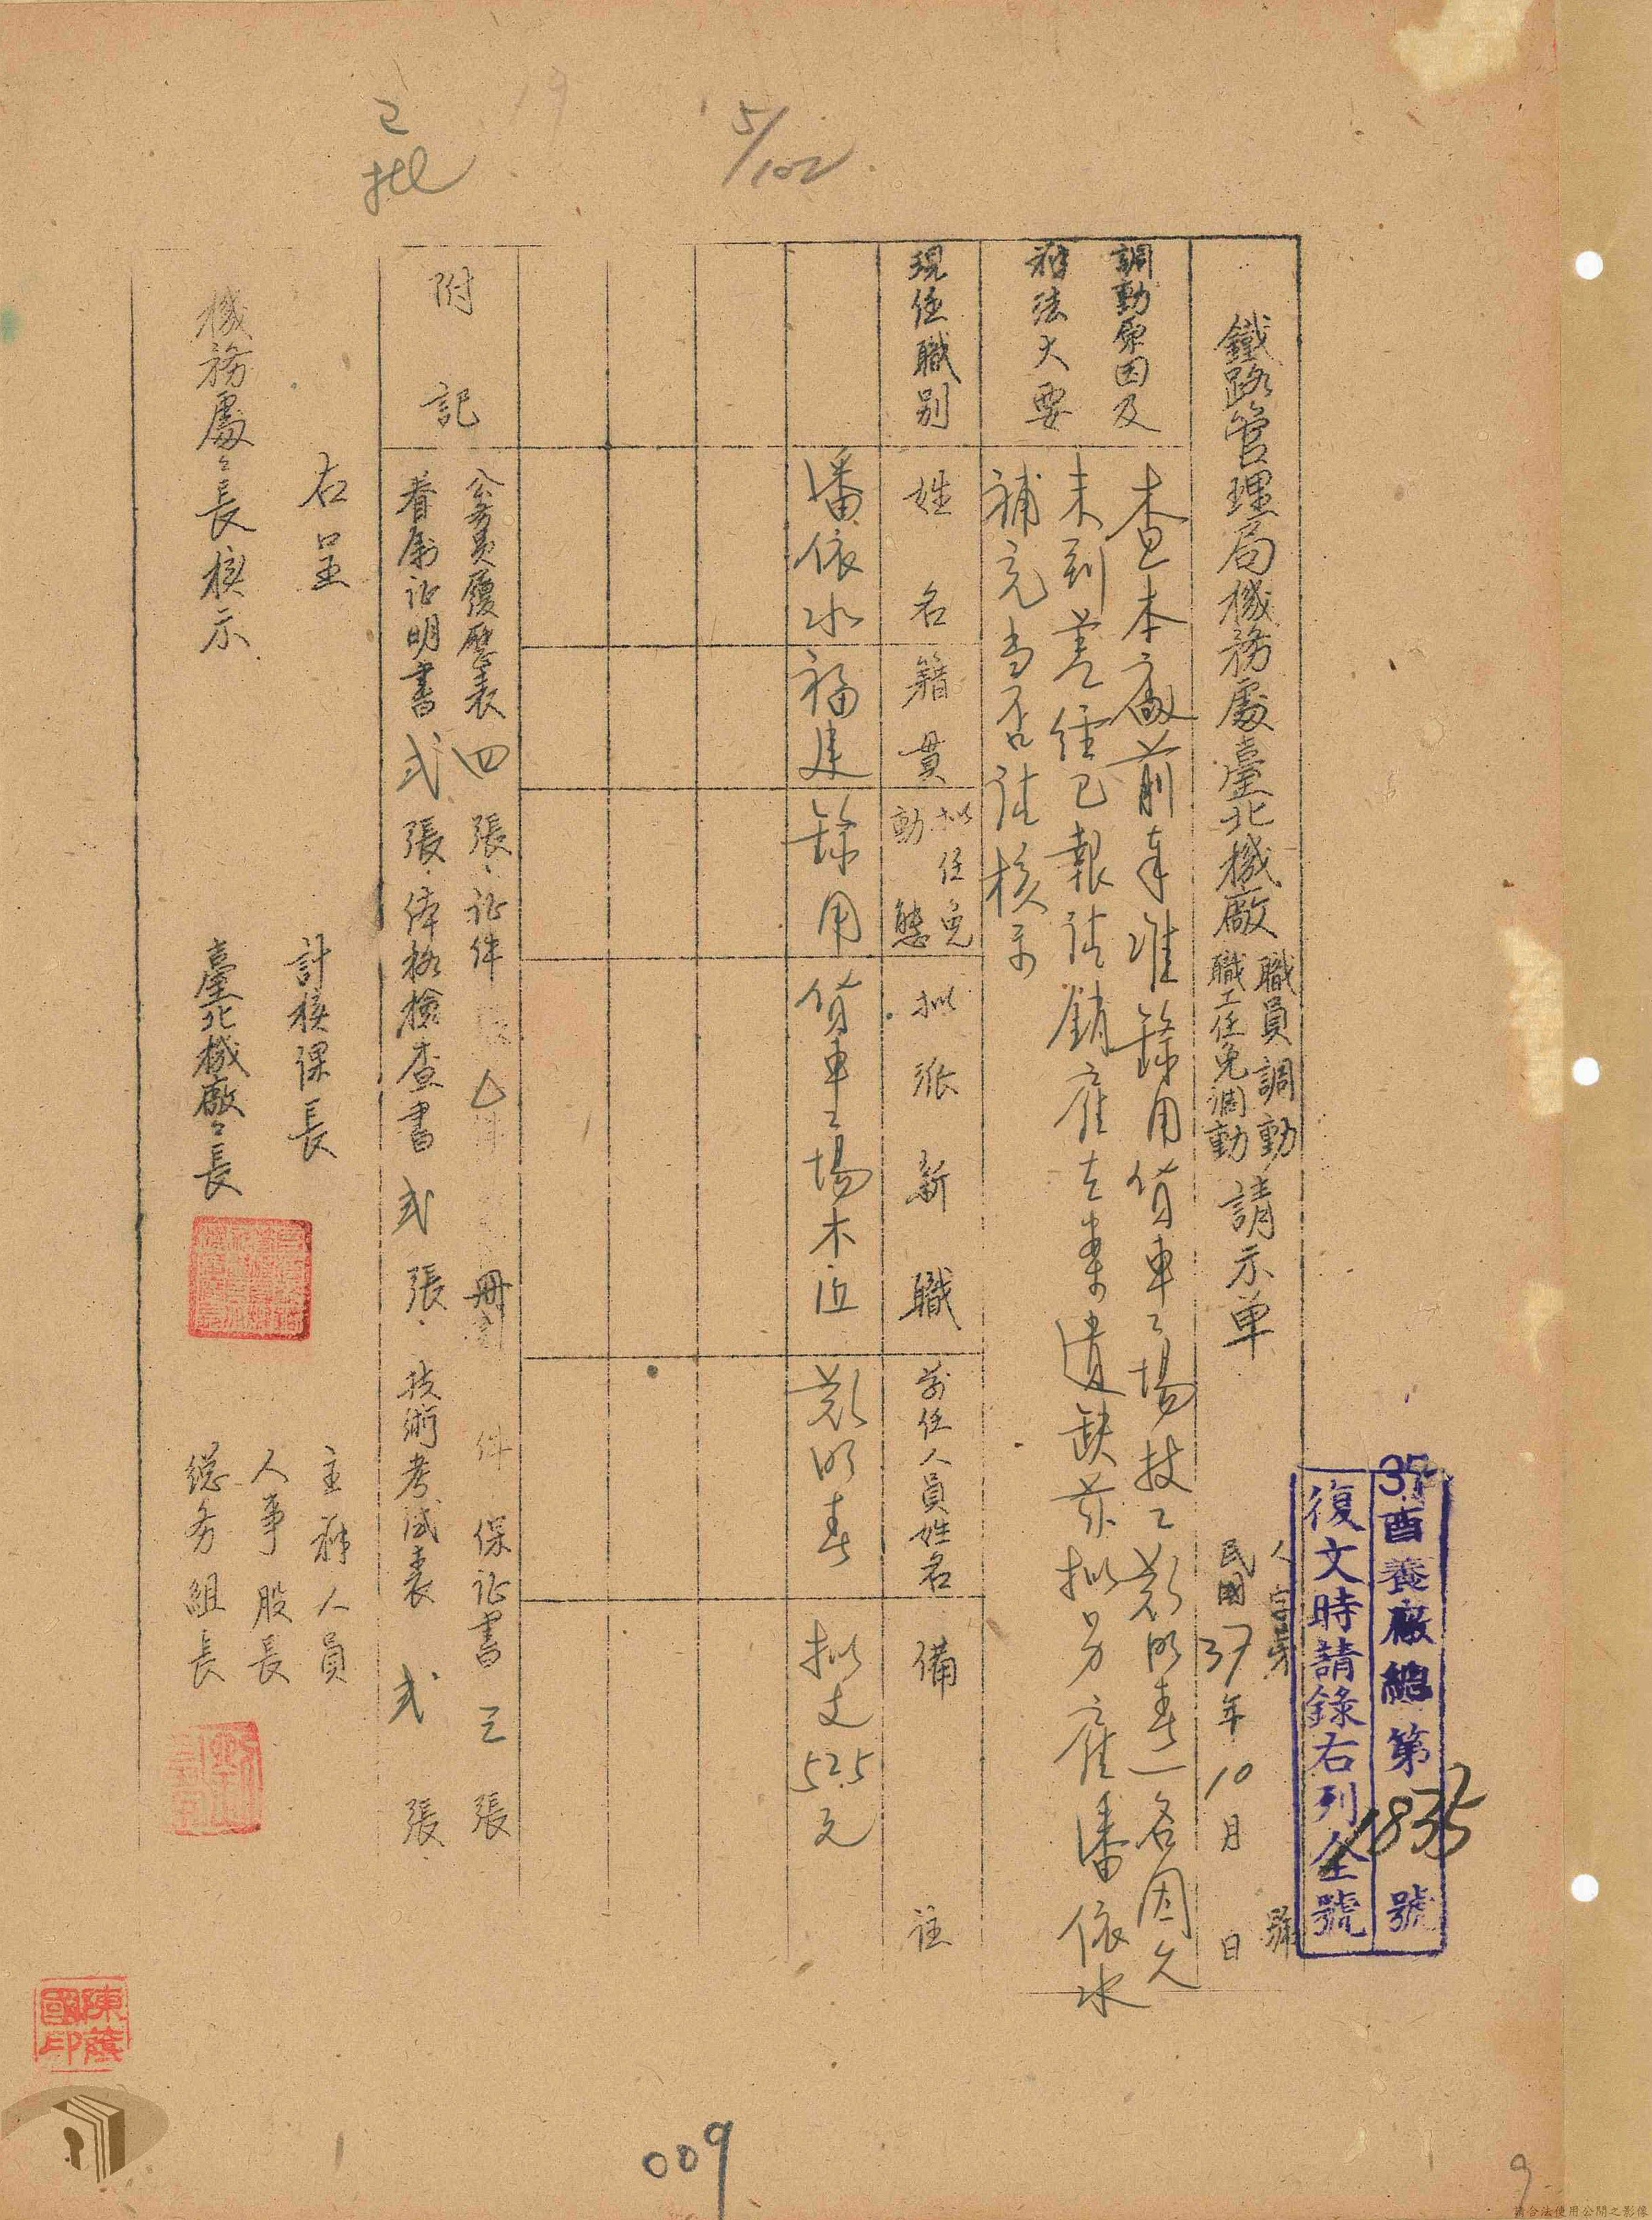 已批
5/102
37酉養廠總第1835號
復文時請錄右列全號
鐵路管理局機務處臺北機廠職員調動職工任免調動請示单
人字第 號
民國37年10月 日
調動原因及辦法大要
查本廠前奉准錄用貨車工場技工鄭明春一名因久
未到差經已報請銷雇在案遺缺茲拟另雇潘依水
補充当否請核示
現任職別
姓名
籍貫
拟任免動態
拟派新職
前任人員姓名
備註
潘依水
福建
錄用
貨車工場木匠
鄭明春
拟支525元
附記
公务員履歷表四張、证件 件 保证書三張
眷屬证明書弍張、体格檢查書弍張、技術考试表弍張
右呈
機務處々長核示
計核課長
臺北機廠々長
主辦人員
人事股長
総务組長
陳蔭國印
009
9
請合法使用公開之影像